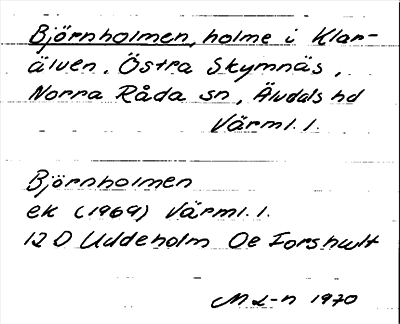 Björnholmen, holme i Klar-
älven. Östra Skymnäs,
Norra Råda sn, Älvdals hd
Värml. l.
Björnholmen
ek (1969) Värml. l.
12 D Uddeholm Oe Forshult
M L-n 1970